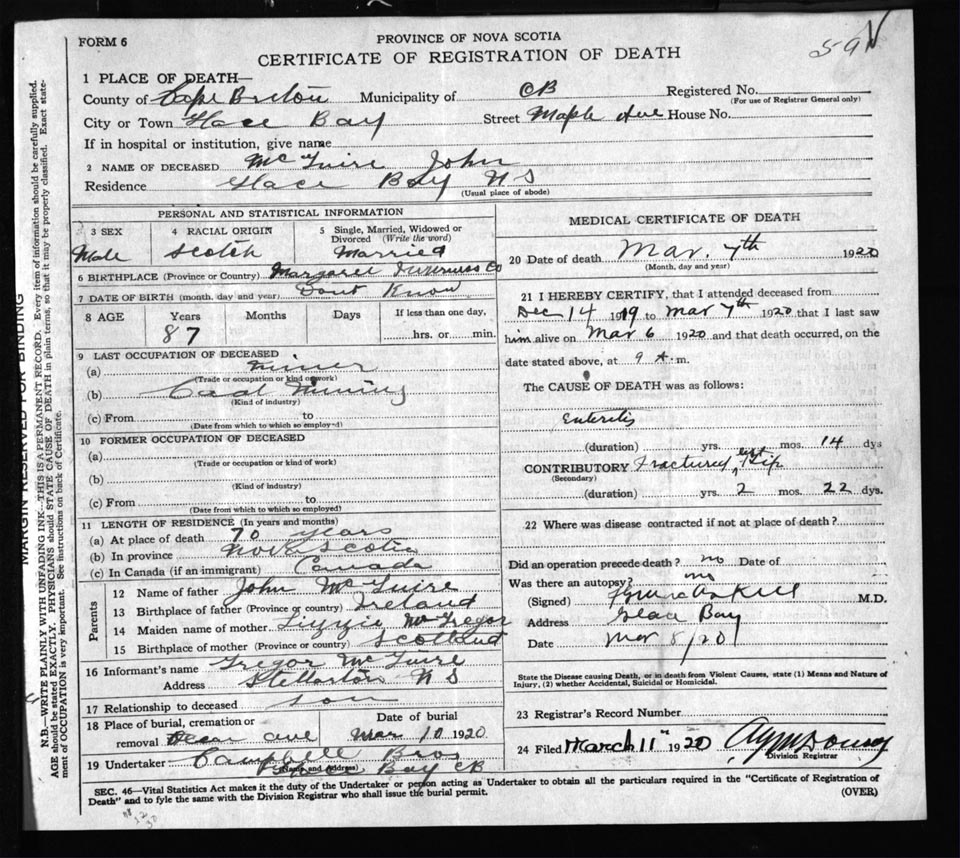 FORM 6
PROVINCE OF NOVA SCOTIA
CERTIFICATE OF REGISTRATION OF DEATH
59
1 PLACE OF DEATH—
County of Cape Breton Municipality of CB Registered No.
(For use of Registrar General only)
City or Town Glace Bay Street Maple Ave House No.
If in hospital or institution, give name
2 NAME OF DECEASED McGuire John
Residence Glace Bay NS
(Usual place of abode)
PERSONAL AND STATISTICAL INFORMATION
3 SEX 4 RACIAL ORIGIN 5 Single, Married, Widowed or Divorced (Write the word)
Male Scotch Married
6 BIRTHPLACE (Province or Country) Margaree Inverness Co
7 DATE OF BIRTH (month, day and year) Dont Know
8 AGE Years Months Days If less than one day,
87 hrs. or min.
9 LAST OCCUPATION OF DECEASED
(a) Miner
(Trade or occupation or kind of work)
(b) Coal Mining
(Kind of industry)
(c) From to
(Date from which to which so employed)
10 FORMER OCCUPATION OF DECEASED
(a)
(Trade or occupation or kind of work)
(b)
(Kind of industry)
(c) From to
(Date from which to which so employed)
11 LENGTH OF RESIDENCE (In years and months)
(a) At place of death 70 years
(b) In province Nova Scotia
(c) In Canada (if an immigrant) Canada
Parents
12 Name of father John McGuire
13 Birthplace of father (Province or country) Ireland
14 Maiden name of mother Lizzie McGregor
15 Birthplace of mother (Province or country) Scotland
16 Informant's name Gregor McGuire
Address Stellarton NS
17 Relationship to deceased Son
18 Place of burial, cremation or removal Date of burial
ave Mar 10 1920
19 Undertaker Campbell Bros
(Name and Address) Bay CB
MEDICAL CERTIFICATE OF DEATH
20 Date of death Mar. 7th 1920
(Month, day and year)
21 I HEREBY CERTIFY, that I attended deceased from
Dec 14 1919 to Mar 7th 1920 that I last saw
him alive on Mar 6 1920 and that death occurred, on the
date stated above, at 9 A.m.
The CAUSE OF DEATH was as follows:
Enteritis
(duration) yrs. mos. 14 dys
CONTRIBUTORY Fractured left Hip
(Secondary)
(duration) yrs. 2 mos. 22 dys.
22 Where was disease contracted if not at place of death?
Did an operation precede death? no Date of
Was there an autopsy? no
(Signed) M.D.
Address Glace Bay
Date Mar 8/20
State the Disease causing Death, or in death from Violent Causes, state (1) Means and Nature of
Injury, (2) whether Accidental, Suicidal or Homicidal.
23 Registrar's Record Number
24 Filed March 11" 1920
Division Registrar
SEC. 46—Vital Statistics Act makes it the duty of the Undertaker or person acting as Undertaker to obtain all the particulars required in the "Certificate of Registration of
Death" and to fyle the same with the Division Registrar who shall issue the burial permit. (OVER)
MARGIN RESERVED FOR BINDING
N.B.—WRITE PLAINLY WITH UNFADING INK—THIS IS A PERMANENT RECORD. Every item of information should be carefully supplied.
AGE should be stated EXACTLY. PHYSICIANS should STATE CAUSE OF DEATH in plain terms, so that it may be properly classified. Exact state-
ment of OCCUPATION is very important. See instructions on back of Certificate.